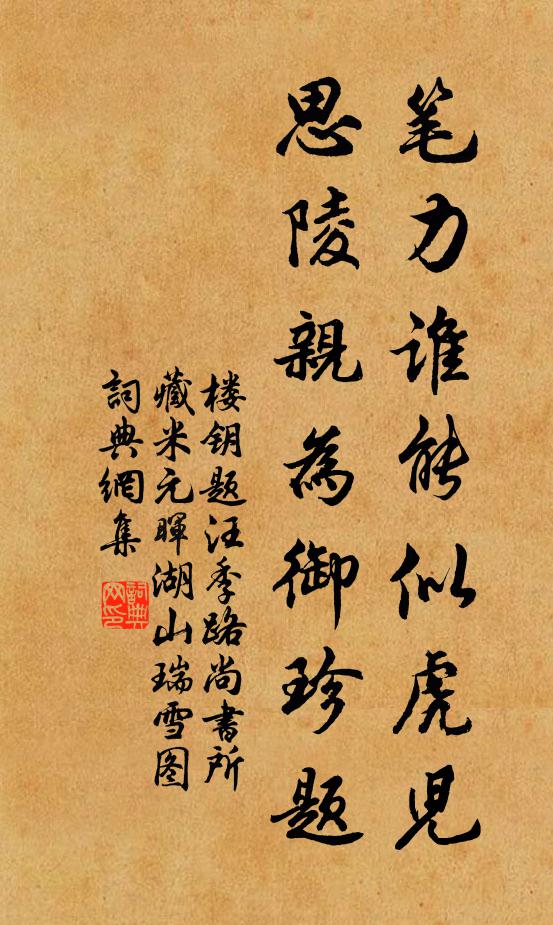 笔力谁能似虎児
思陵親為御珍题
楼钥题汪季路尚書所
藏米元暉湖山瑞雪图
詞典網集
詞典
网印